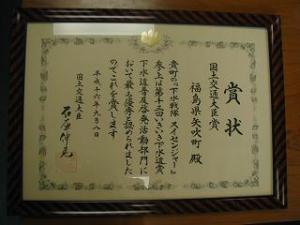 賞状
国土交通大臣賞
福島県矢吹町 殿
貴町の「下水戦隊 スイセンジャー」
参上は第十三回いきいき下水道賞
下水道普及啓発活動部門に
おいて最も優秀と認められました
のでこれを賞します
平成十六年九月八日
国土交通大臣
石原伸晃